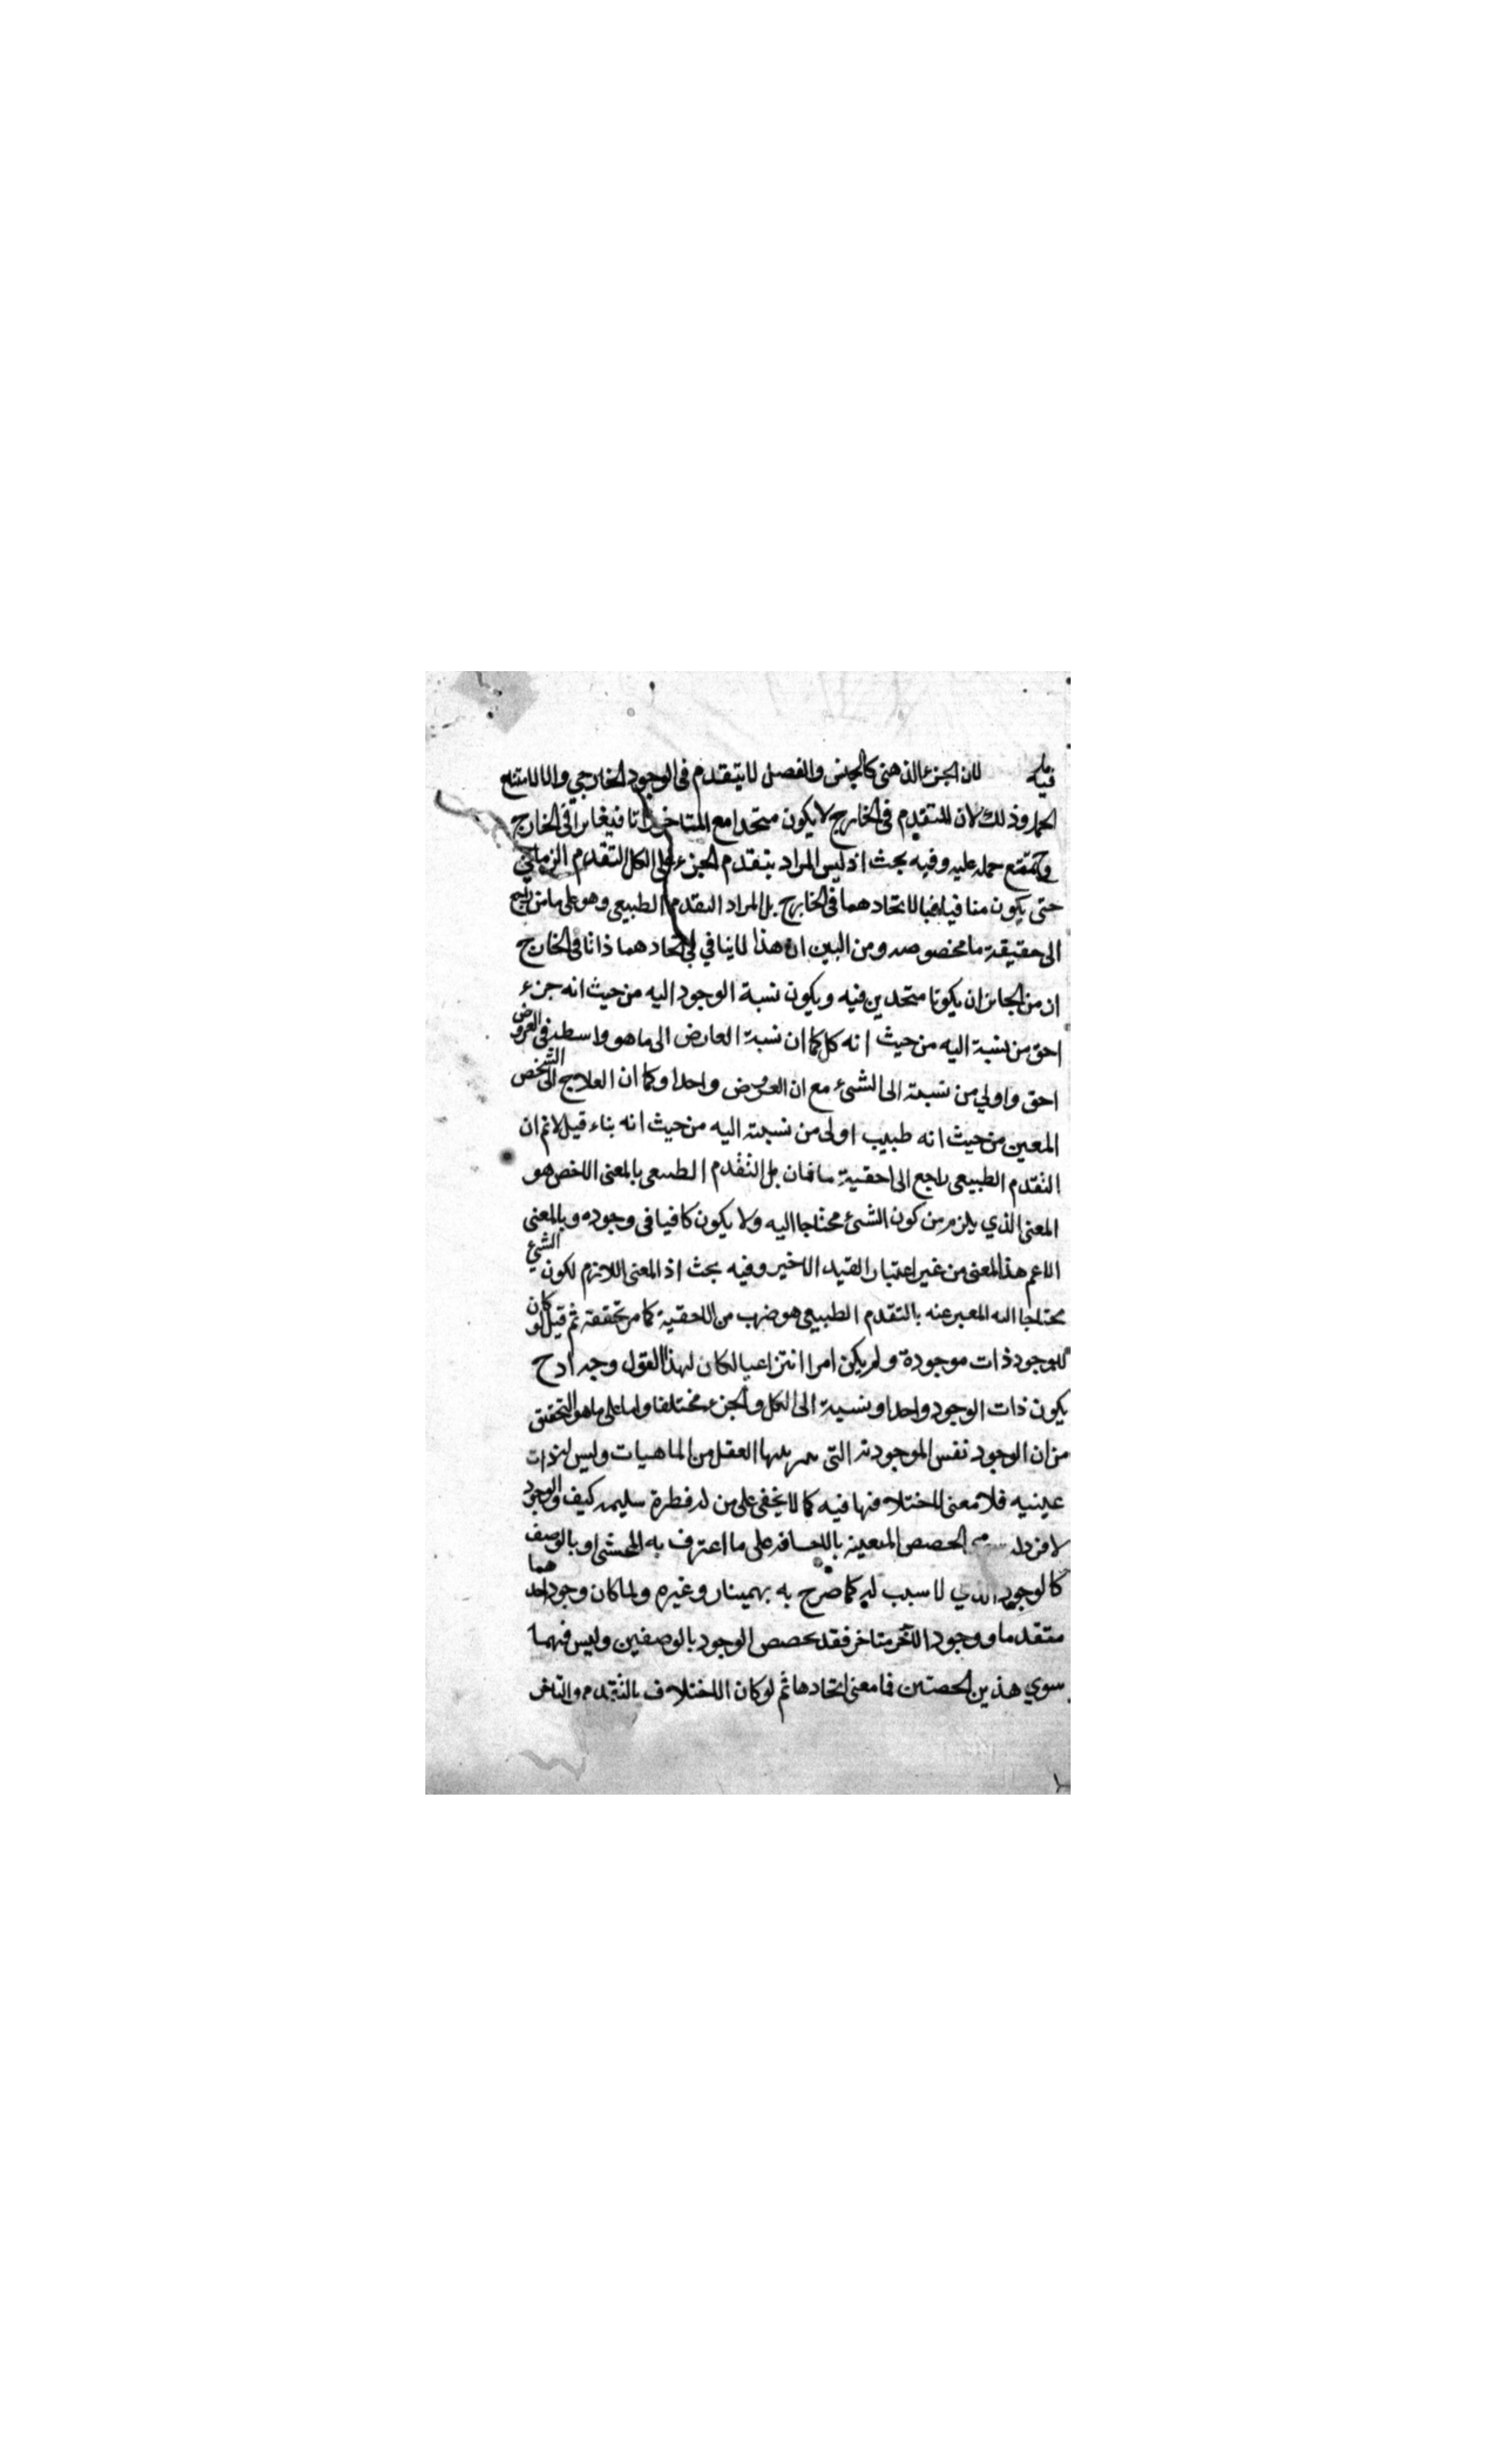 فيه لان الجزء الذهني كالجنس والفصل لا يتقدم في الوجود الخارجي والا لامتنع
الحمل وذلك لان المتقدم في الخارج لا يكون متحدا مع المتاخر ذاتا فيغايرا في الخارج
وح يمتنع حمله عليه وفيه بحث اذ ليس المراد بتقدم الجزء على الكل التقدم الزماني
حتى يكون منافيا لاتحادهما في الخارج بل المراد التقدم الطبيعي وهو على ما من راجع
الى حقيقة ما مخصوصه ومن البين ان هذا لا ينافي اتحادهما ذاتا في الخارج
ان من الجائز ان يكونا متحدين فيه ويكون نسبة الوجود اليه من حيث انه جزء
احق من نسبة اليه من حيث انه كل كما ان نسبة العارض الى ما هو واسطه في العروض
احق واولي من نسبته الى الشيء مع ان العروض واحدا وكما ان العلاج الى الشخص
المعين من حيث انه طبيب اولى من نسبته اليه من حيث انه بناء قيل لانم ان
التقدم الطبيعي راجع الى احقية ما فان بل التقدم الطبيعي بالمعنى الاخص هو
المعنى الذي يلزم من كون الشئ محتاجا اليه ولا يكون كافيا في وجوده وبالمعنى
الاعم هذا المعنى من غير اعتبار القيد الاخير وفيه بحث اذ المعنى اللازم لكون الشئ
محتاجا اليه المعبر عنه بالتقدم الطبيعي هو ضرب من الاحقية كما مر تحققة ثم قيل لو كان
للوجود ذات موجودة ولم يكن امرا انتزاعيا لكان لهذا القول وجه اذ ح
يكون ذات الوجود واحدا ونسبة الى الكل والجزء مختلفا واما على ما هو التحقيق
من ان الوجود نفس الموجودية التي العقل من الماهيات وليس له ذات
عينيه فلا معنى لاختلافها فيه كما لا يخفى على من له فطرة سليمه كيف والوجود
لا فرد له الحصص المعينة بالاضافه على ما اعترف به المحشي او بالوصف
كالوجود الذي لا سبب له كما صرح به بهمينار وغيره ولما كان وجود احدهما
متقدما ووجود الاخر متاخر فقد تحصص الوجود بالوصفين وليس فيهما
سوي هذين الحصتين فما معنى اتحادها ثم لو كان الاختلاف بالتقدم والتاخر